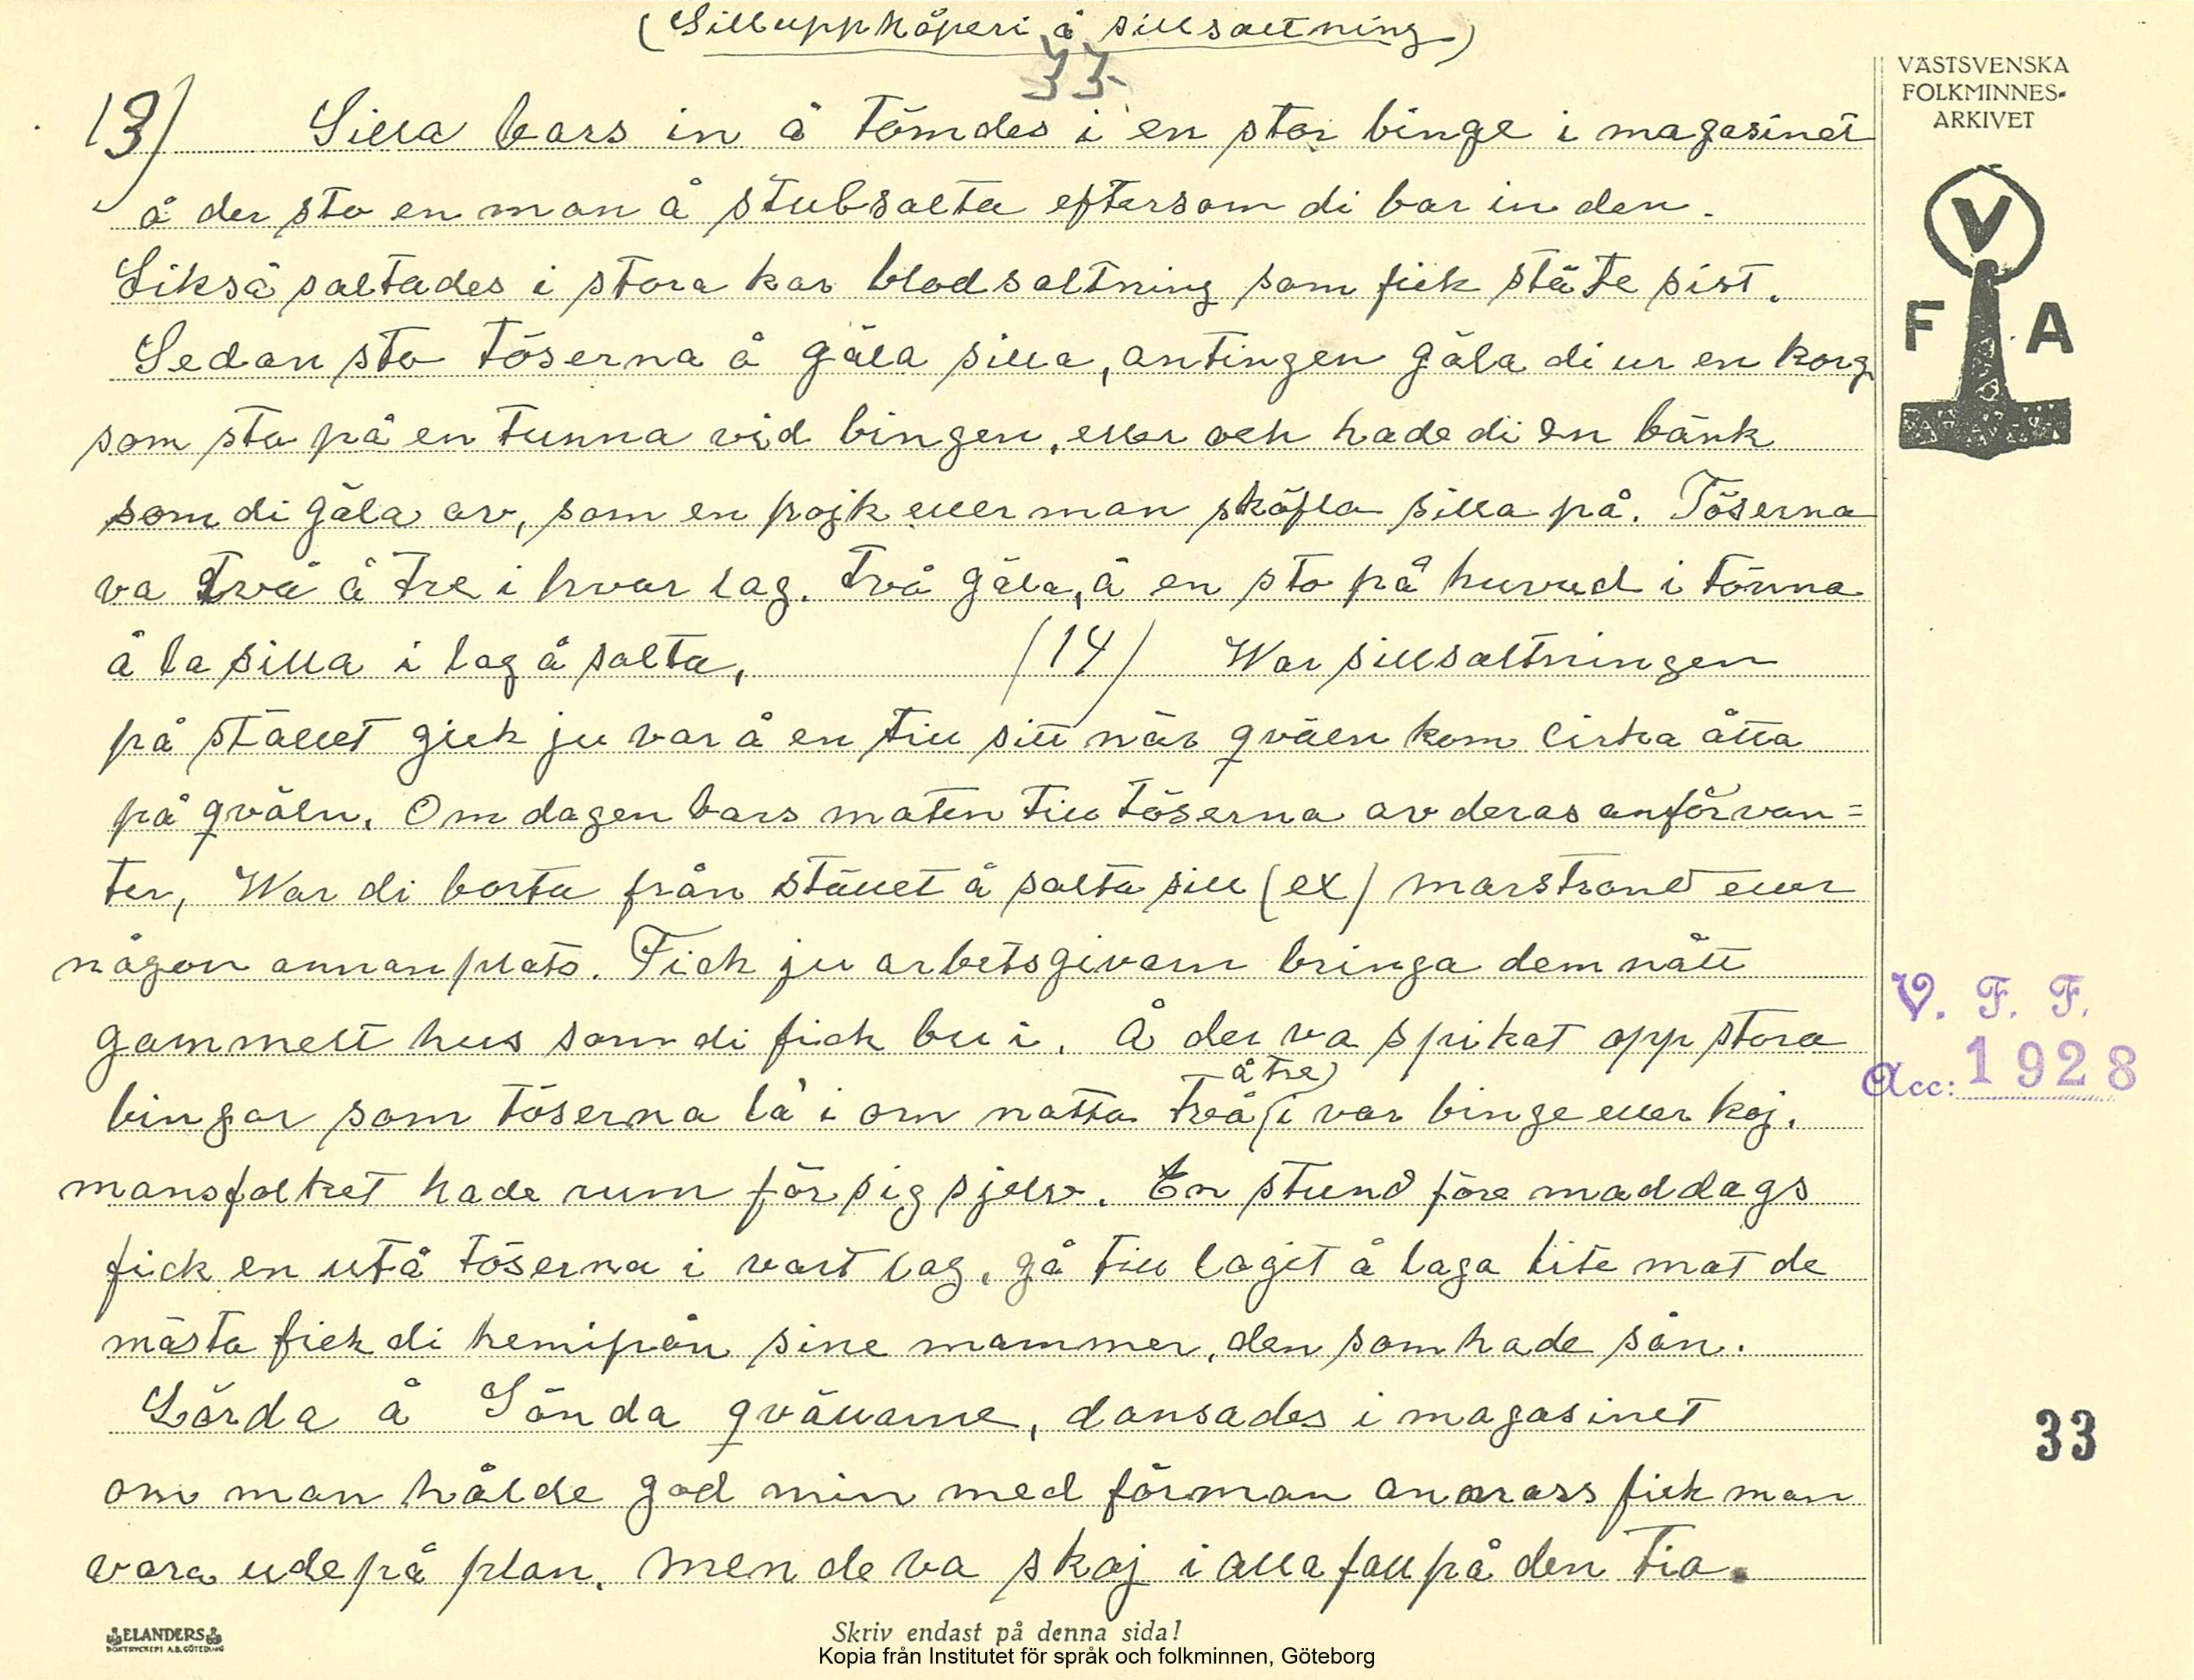 (Silluppköperi å sillsaltning)
33
VÄSTSVENSKA
FOLKMINNES-
ARKIVET
V
F A
13) Silla bars in å tömdes i en stor binge i magasinet
å der sto en man å stubsalta eftersom di bar in den.
Likså saltades i stora kar blodsaltning som fick ståte sist.
Sedan sto töserna å gäla silla, antingen gäla di ur en korg
som sto på en tunna vid bingen, eller och hade di en bänk
som di gäla av, som en pojk eller man sköfla silla på. Töserna
va två å tre i hvar lag. två gäla, å en sto på huvud i tönna
å la silla i lag å salta, (14) War sillsaltningen
på stället gick ju var å en till sitt när qvälln kom cirka åtta
på qväln. Om dagen bars maten till töserna av deras anförvan=
ter, War di borta från stället å salta sill (ex) marstrand eller
någon annan plats. Fick ju arbetsgivarn bringa dem nått
gammelt hus som di fick bu i. Å der va spikat opp stora
bingar som töserna lå i om natta två (å tre) i var binge eller koj.
mansfolket hade rum för sig sjelv. En stund före maddags
fick en utå töserna i vart lag, gå till laget å laga lite mat de
mästa fick di hemipån sine mammer, den som hade sån.
Lörda å Sönda qvällarne, dansades i magasinet
om man hålde god min med förman anarass fick man
vara ude på plan. Men de va skoj i alla fall på den tia.
V. F. F.
Acc: 1928
33
ELANDERS
BOKTRYCKERI A.B. GÖTEBORG
Skriv endast på denna sida!
Kopia från Institutet för språk och folkminnen, Göteborg